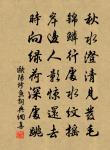 秋水澄清見髮毛
錦鱗行處水紋搖
岸邊人影驚還去
時向綠荷深處跳
歐陽修魚